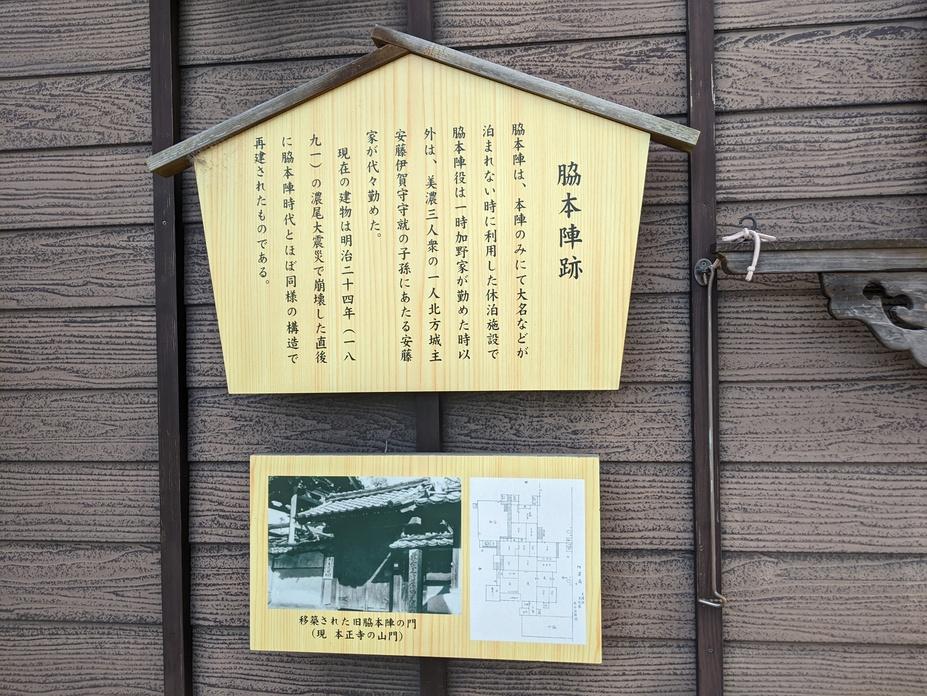 脇本陣跡
脇本陣は、本陣のみにて大名などが
泊まれない時に利用した休泊施設で
脇本陣役は一時加野家が勤めた時以
外は、美濃三人衆の一人北方城主
安藤伊賀守守就の子孫にあたる安藤
家が代々勤めた。
現在の建物は明治二十四年（一八
九一）の濃尾大震災で崩壊した直後
に脇本陣時代とほぼ同様の構造で
再建されたものである。
移築された旧脇本陣の門
（現 本正寺の山門）